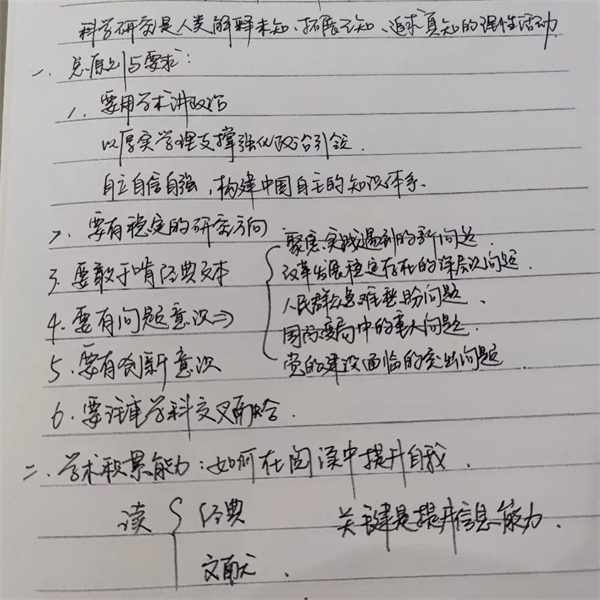 科学研究是人类解释未知、拓展已知、追求真知的理性活动
一、总原则与要求：
1. 要用学术讲政治
以厚实学理支撑强化政治引领.
自立自信自强，构建中国自主的知识体系.
2. 要有稳定的研究方向
3. 要敢于啃经典文本
4. 要有问题意识⇒
聚焦实践遇到的新问题.
改革发展稳定存在的深层次问题.
人民群众急难愁盼问题、
国际变局中的重大问题.
党的建设面临的突出问题
5. 要有创新意识
6. 要注重学科交叉融合.
二、学术积累能力：如何在阅读中提升自我.
读 { 经典
文献.
关键是提升信息能力.